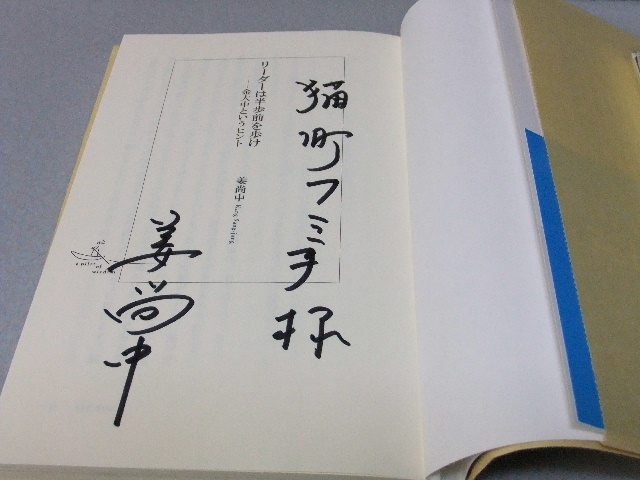 猫町フミヲ様
リーダーは半歩前を歩け
——金大中というヒント
姜尚中 Kang Sang-jung
姜尚中
a pilot of wisdom